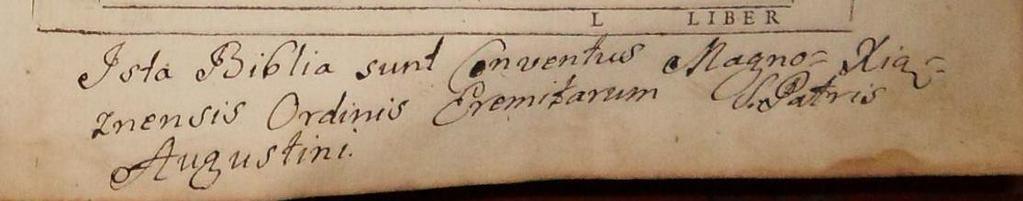 L LIBER
Ista Biblia sunt Conventus Magno= Xią=
znensis Ordinis Eremitarum S. Patris
Augustini.